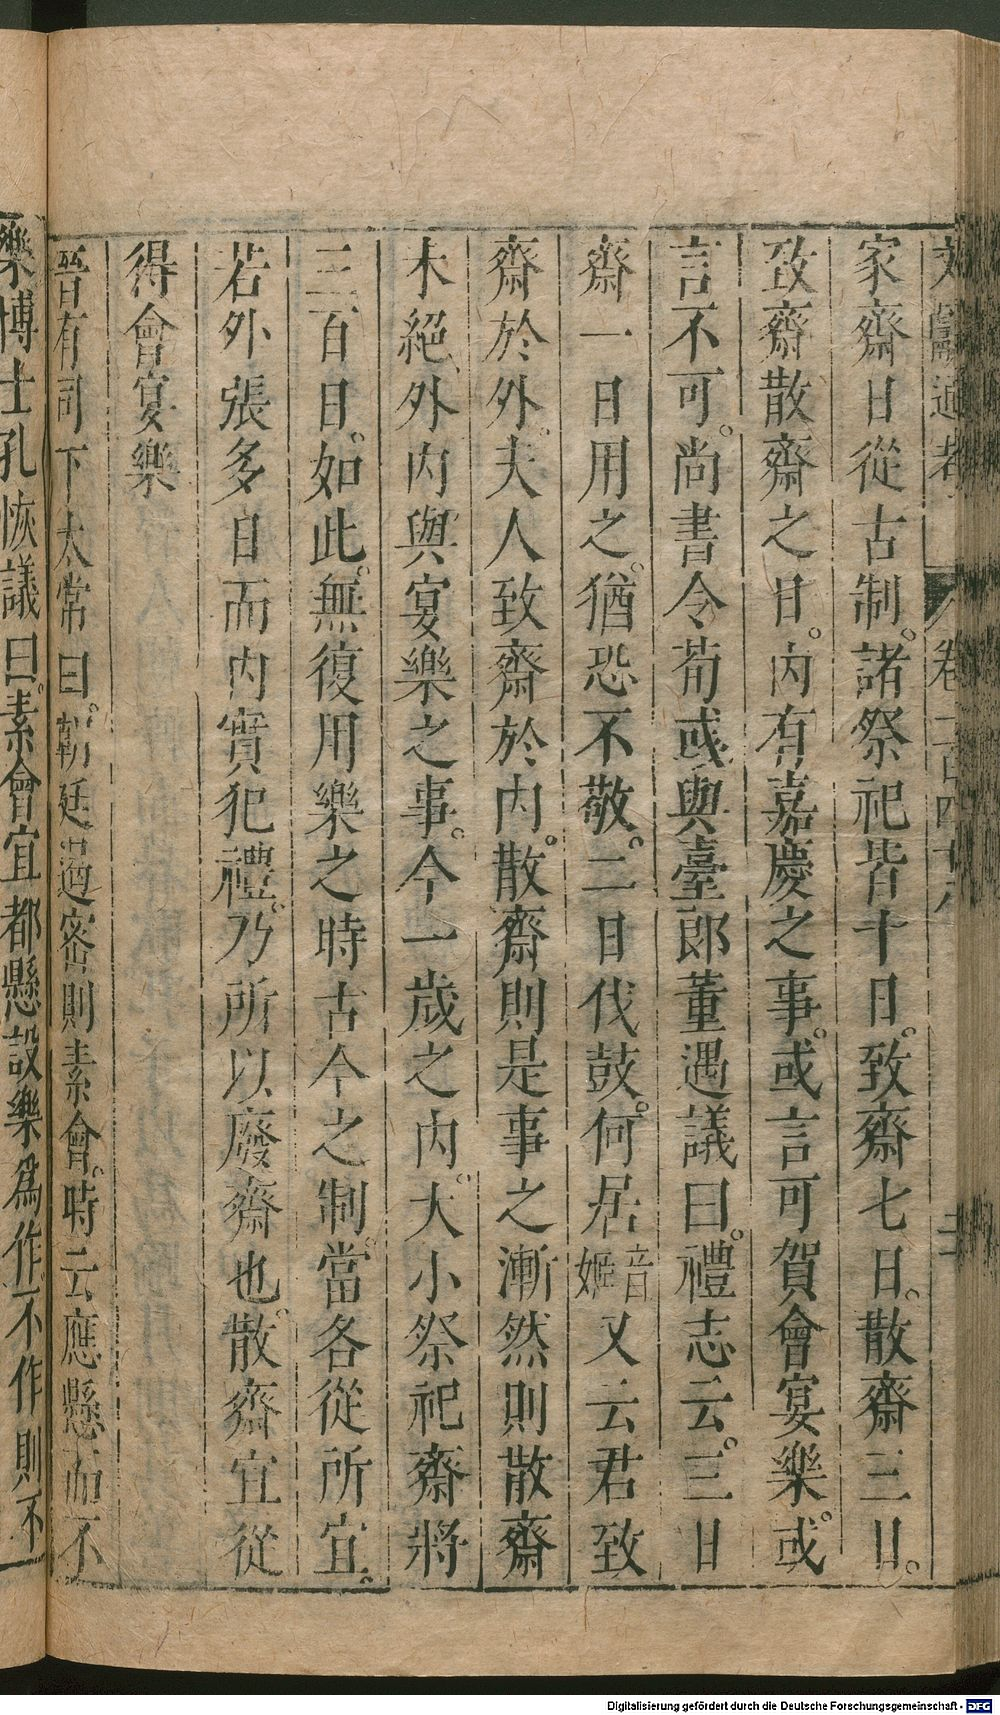 文獻通考 卷一百四十八
家齋日從古制。諸祭祀皆十日。致齋七日。散齋三日。
致齋散齋之日。內有嘉慶之事。或言可賀會宴樂。或
言不可。尚書令荀彧與臺郎董遇議曰。禮志云。三日
齋一日用之。猶恐不敬。二日伐鼓。何居音姬又云君致
齋於外。夫人致齋於內。散齋則是事之漸然則散齋
未絕外內與宴樂之事。今一歲之內。大小祭祀齋將
三百日。如此。無復用樂之時古今之制。當各從所宜。
若外張多日而內實犯禮。乃所以廢齋也。散齋宜從
得會宴樂
晉有司下太常曰。朝廷遏密則素會。時云應懸而不
樂博士孔恢議曰。素會宜都懸設樂爲作。不作則不
Digitalisierung gefördert durch die Deutsche Forschungsgemeinschaft - DFG